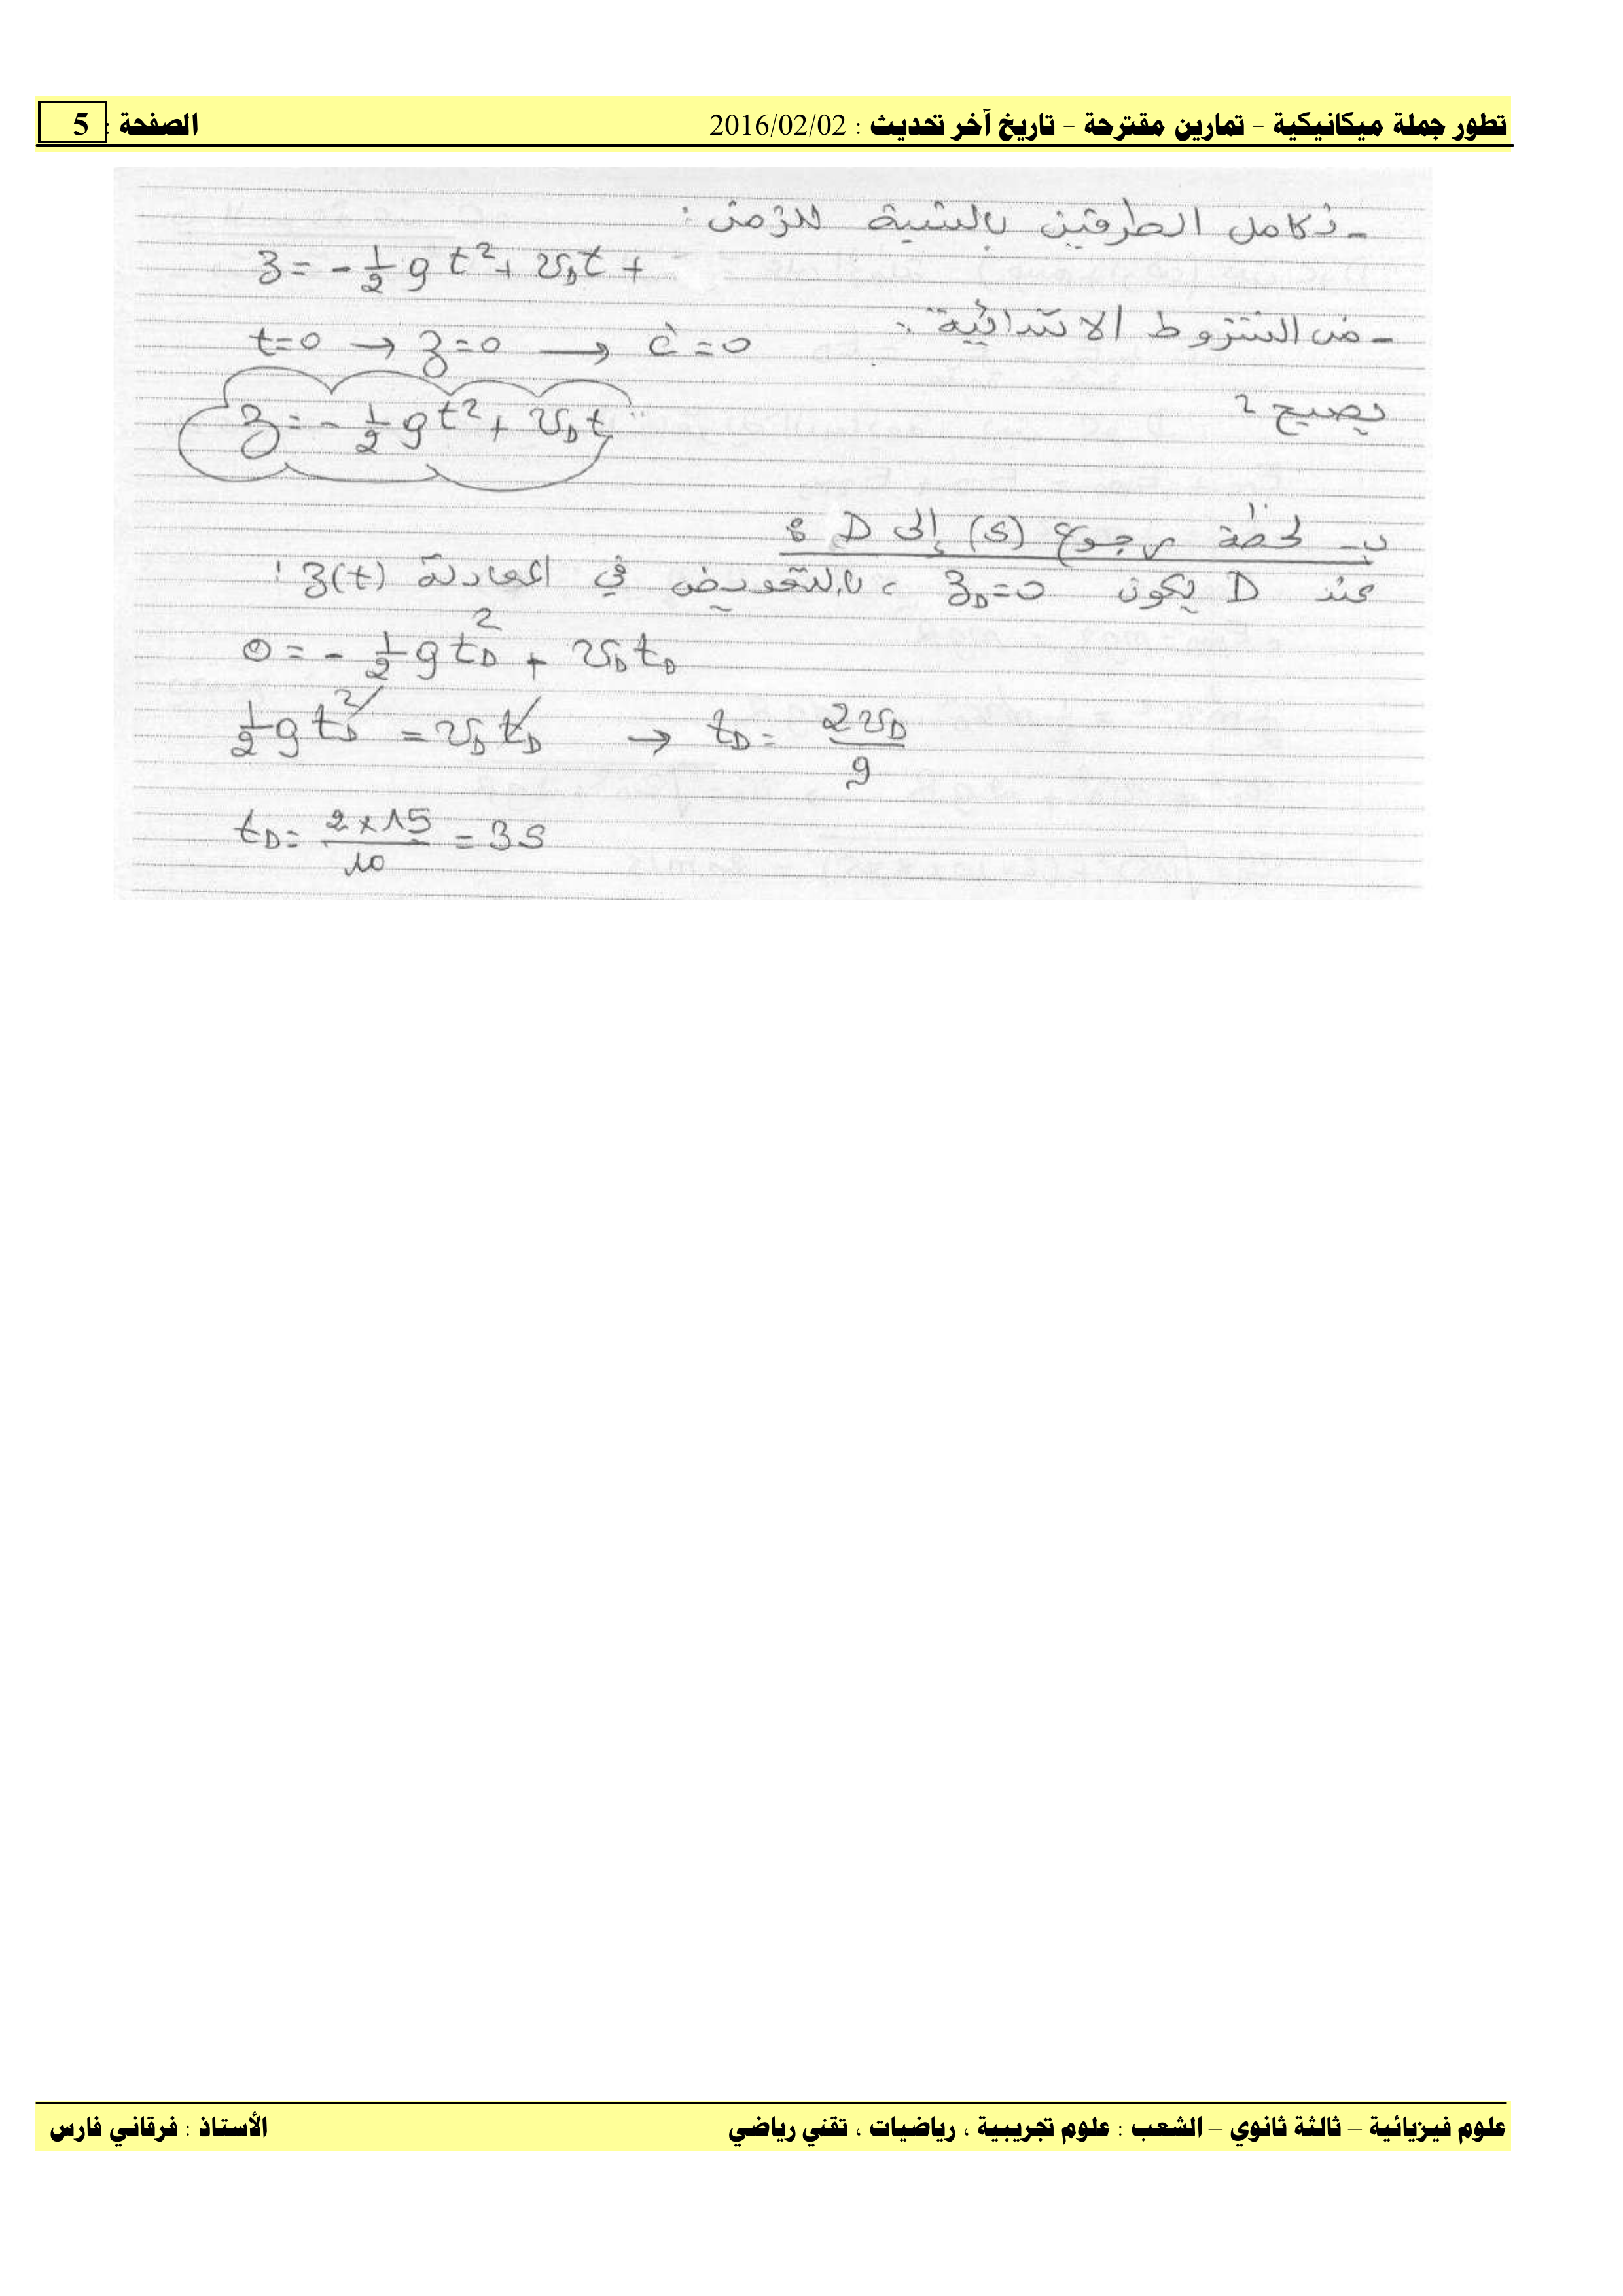 تطور جملة ميكانيكية – تمارين مقترحة – تاريخ آخر تحديث : 2016/02/02 الصفحة : 5
- نكامل الطرفين بالنسبة للزمن :
z = - 1/2 g t² + v_D t +
- من الشروط الابتدائية :
t=0 → z=0 → c'=0
يصبح :
z = - 1/2 g t² + v_D t
ب- لحظة رجوع (S) إلى D :
عند D يكون z_D=0 ، بالتعويض في المعادلة z(t) :
0 = - 1/2 g t_D² + v_D t_D
1/2 g t_D² = v_D t_D → t_D = 2 v_D / g
t_D = 2×15 / 10 = 3 s
علوم فيزيائية – ثالثة ثانوي – الشعب : علوم تجريبية ، رياضيات ، تقني رياضي الأستاذ : فرقاني فارس